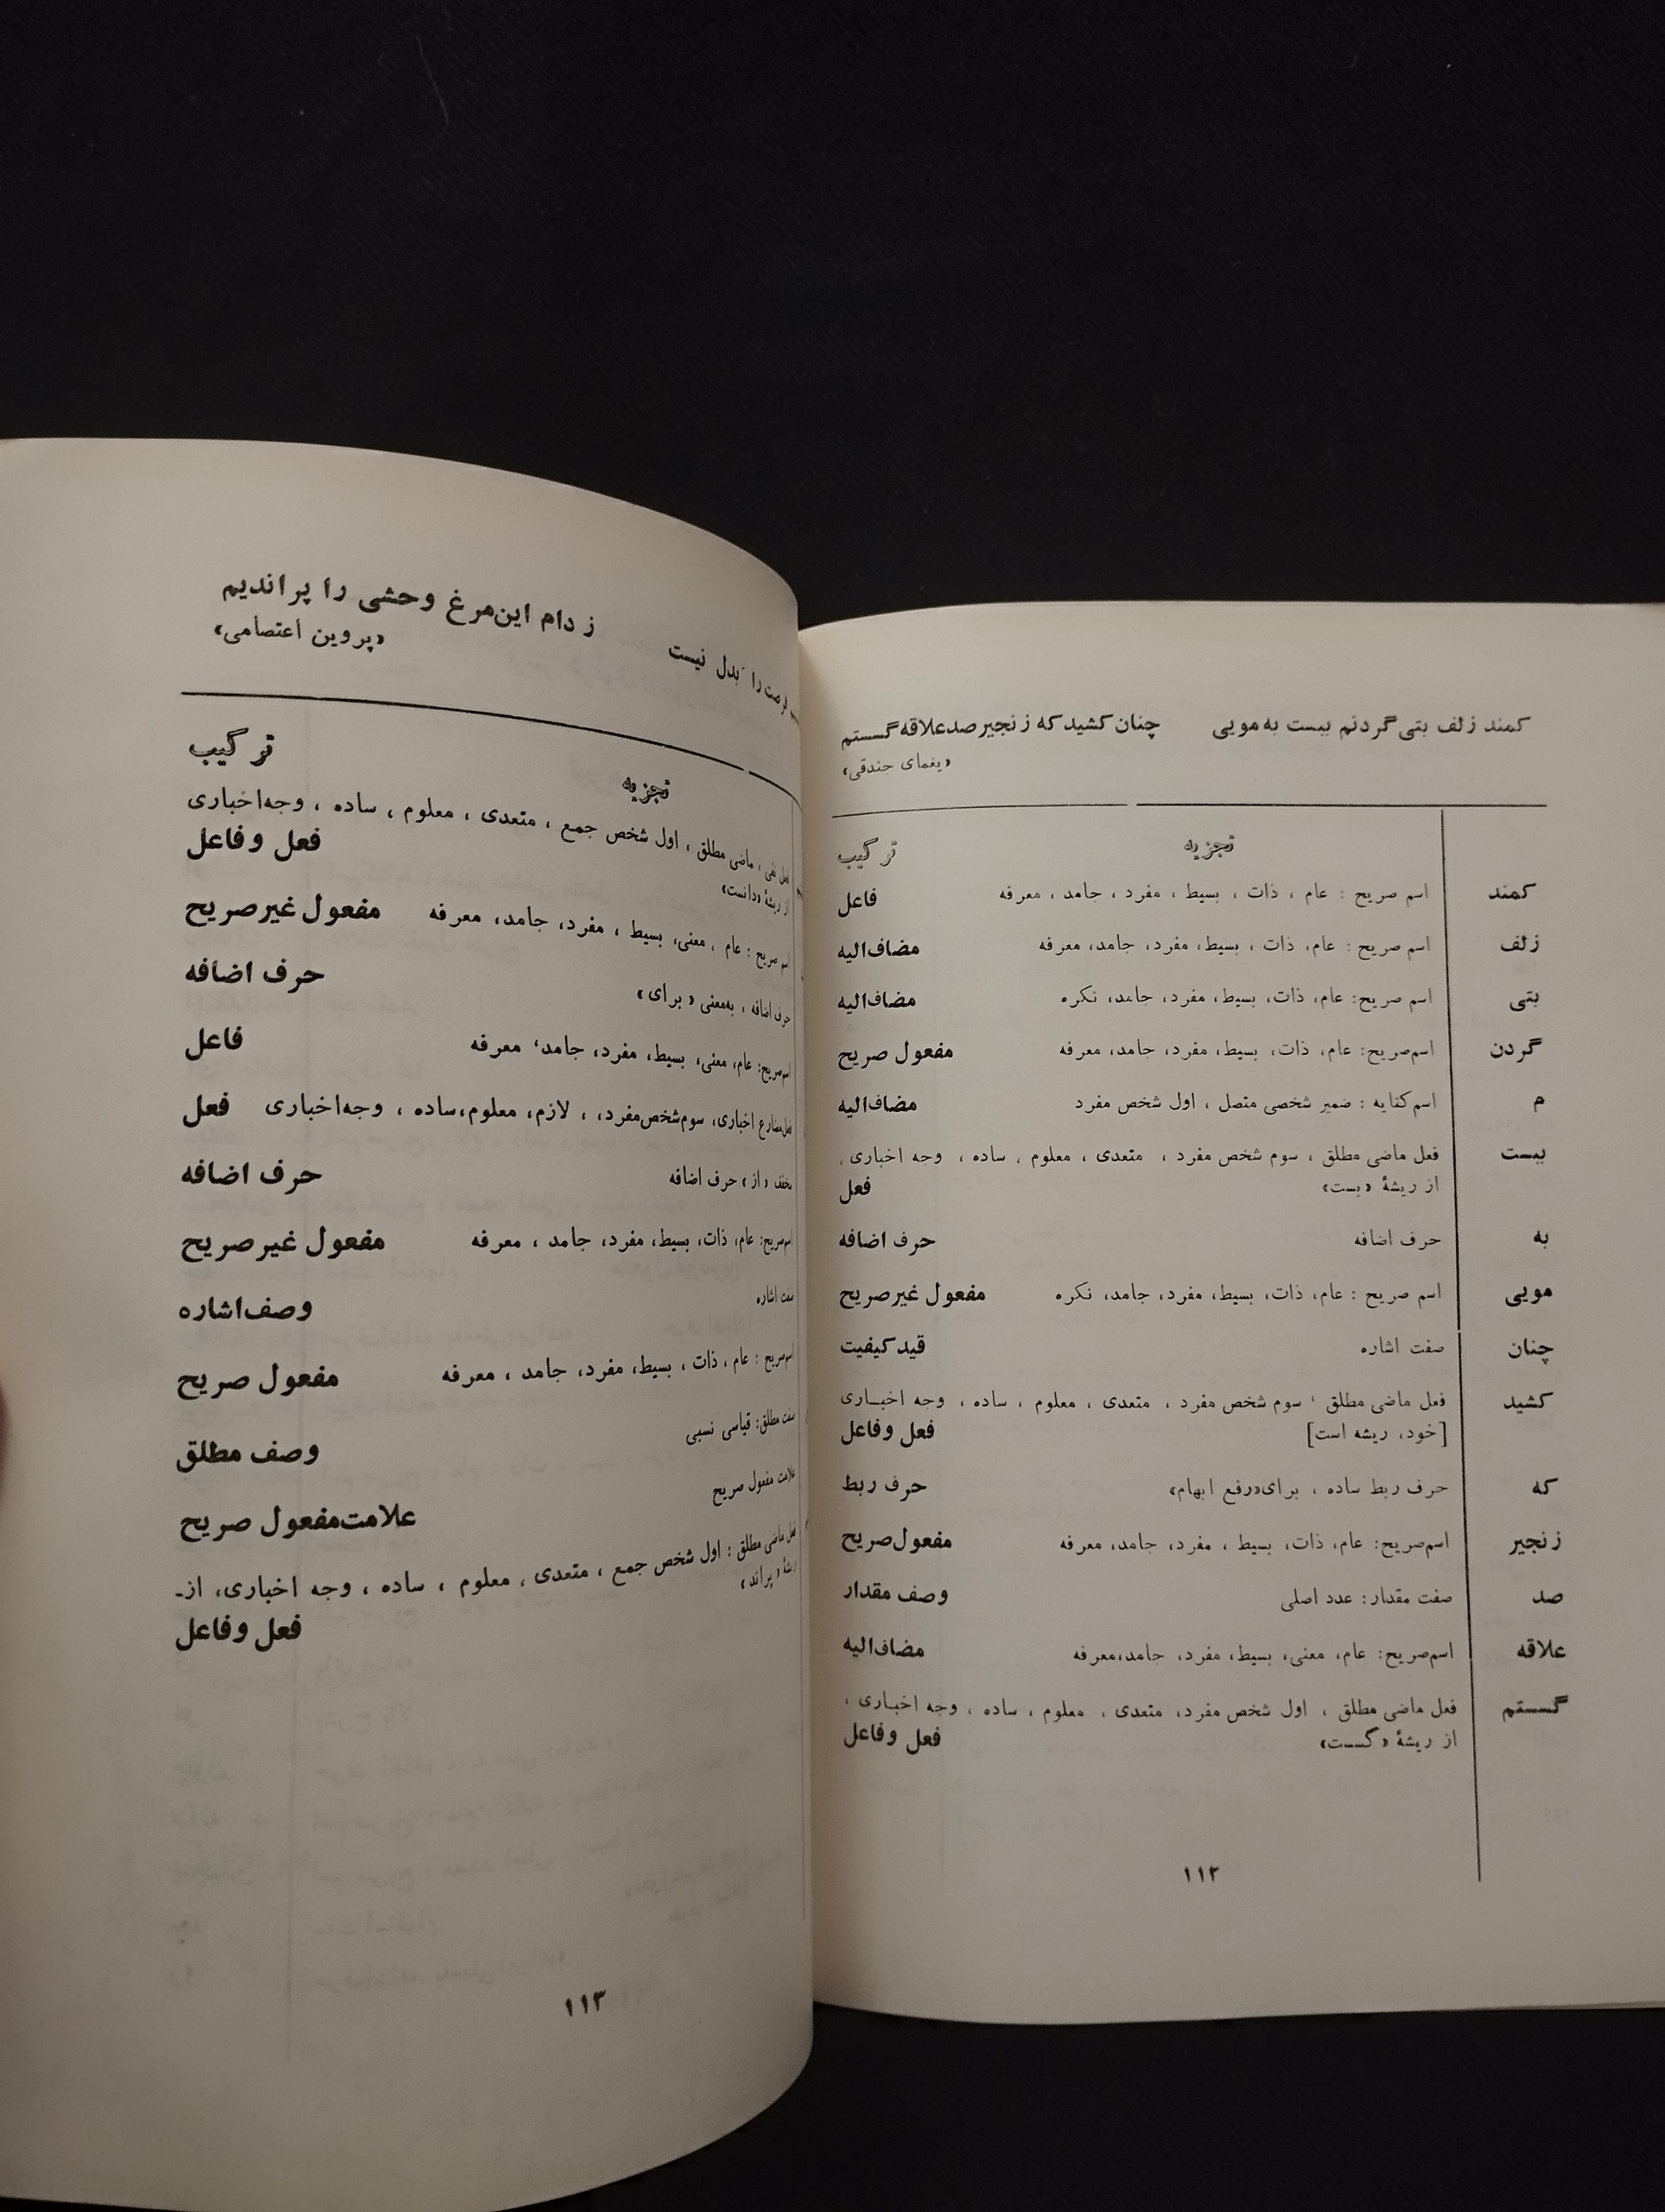 کمند زلف بتی گردنم ببست به‌مویی چنان کشید که زنجیر صد علاقه گسستم
«یغمای جندقی»
تجزیه ترکیب
کمند اسم صریح : عام ، ذات ، بسیط ، مفرد ، جامد ، معرفه فاعل
زلف اسم صریح : عام، ذات ، بسیط، مفرد، جامد، معرفه مضاف‌الیه
بتی اسم صریح: عام، ذات، بسیط، مفرد، جامد، نکره مضاف‌الیه
گردن اسم‌صریح: عام، ذات، بسیط، مفرد، جامد، معرفه مفعول صریح
م اسم‌کنایه : ضمیر شخصی متصل ، اول شخص مفرد مضاف‌الیه
ببست فعل ماضی مطلق ، سوم شخص مفرد ، متعدی ، معلوم ، ساده ، وجه اخباری ،
از ریشهٔ «بست» فعل
به حرف اضافه حرف اضافه
مویی اسم صریح : عام، ذات، بسیط، مفرد، جامد، نکره مفعول غیرصریح
چنان صفت اشاره قید کیفیت
کشید فعل ماضی مطلق ، سوم شخص مفرد ، متعدی ، معلوم ، ساده ، وجه اخباری
[خود، ریشه است] فعل وفاعل
که حرف ربط ساده ، برای«رفع ابهام» حرف ربط
زنجیر اسم‌صریح: عام، ذات، بسیط ، مفرد، جامد، معرفه مفعول‌صریح
صد صفت مقدار: عدد اصلی وصف مقدار
علاقه اسم‌صریح: عام، معنی، بسیط، مفرد، جامد،معرفه مضاف‌الیه
گسستم فعل ماضی مطلق ، اول شخص مفرد، متعدی ، معلوم ، ساده ، وجه اخباری ،
از ریشهٔ «گسست» فعل وفاعل
۱۱۲
فرصت را بَدل نیست ز دام این‌مرغ وحشی را پراندیم
«پروین اعتصامی»
تجزیه ترکیب
فعل نفی ، ماضی مطلق ، اول شخص جمع ، متعدی ، معلوم ، ساده ، وجه‌اخباری
از ریشهٔ «دانست» فعل وفاعل
اسم صریح : عام ، معنی، بسیط ، مفرد، جامد، معرفه مفعول غیرصریح
حرف اضافه ، به‌معنی «برای» حرف اضافه
اسم‌صریح: عام، معنی، بسیط، مفرد، جامد، معرفه فاعل
فعل‌مضارع اخباری، سوم‌شخص‌مفرد، ، لازم، معلوم،ساده ، وجه‌اخباری فعل
مخفف «از» حرف اضافه حرف اضافه
اسم‌صریح: عام، ذات، بسیط، مفرد، جامد ، معرفه مفعول غیرصریح
صفت اشاره وصف‌اشاره
اسم‌صریح : عام ، ذات ، بسیط، مفرد، جامد ، معرفه مفعول صریح
صفت مطلق: قیاسی نسبی وصف مطلق
علامت مفعول صریح علامت‌مفعول صریح
فعل ماضی مطلق : اول شخص جمع ، متعدی ، معلوم ، ساده ، وجه اخباری، از-
ریشهٔ «پراند» فعل وفاعل
۱۱۳